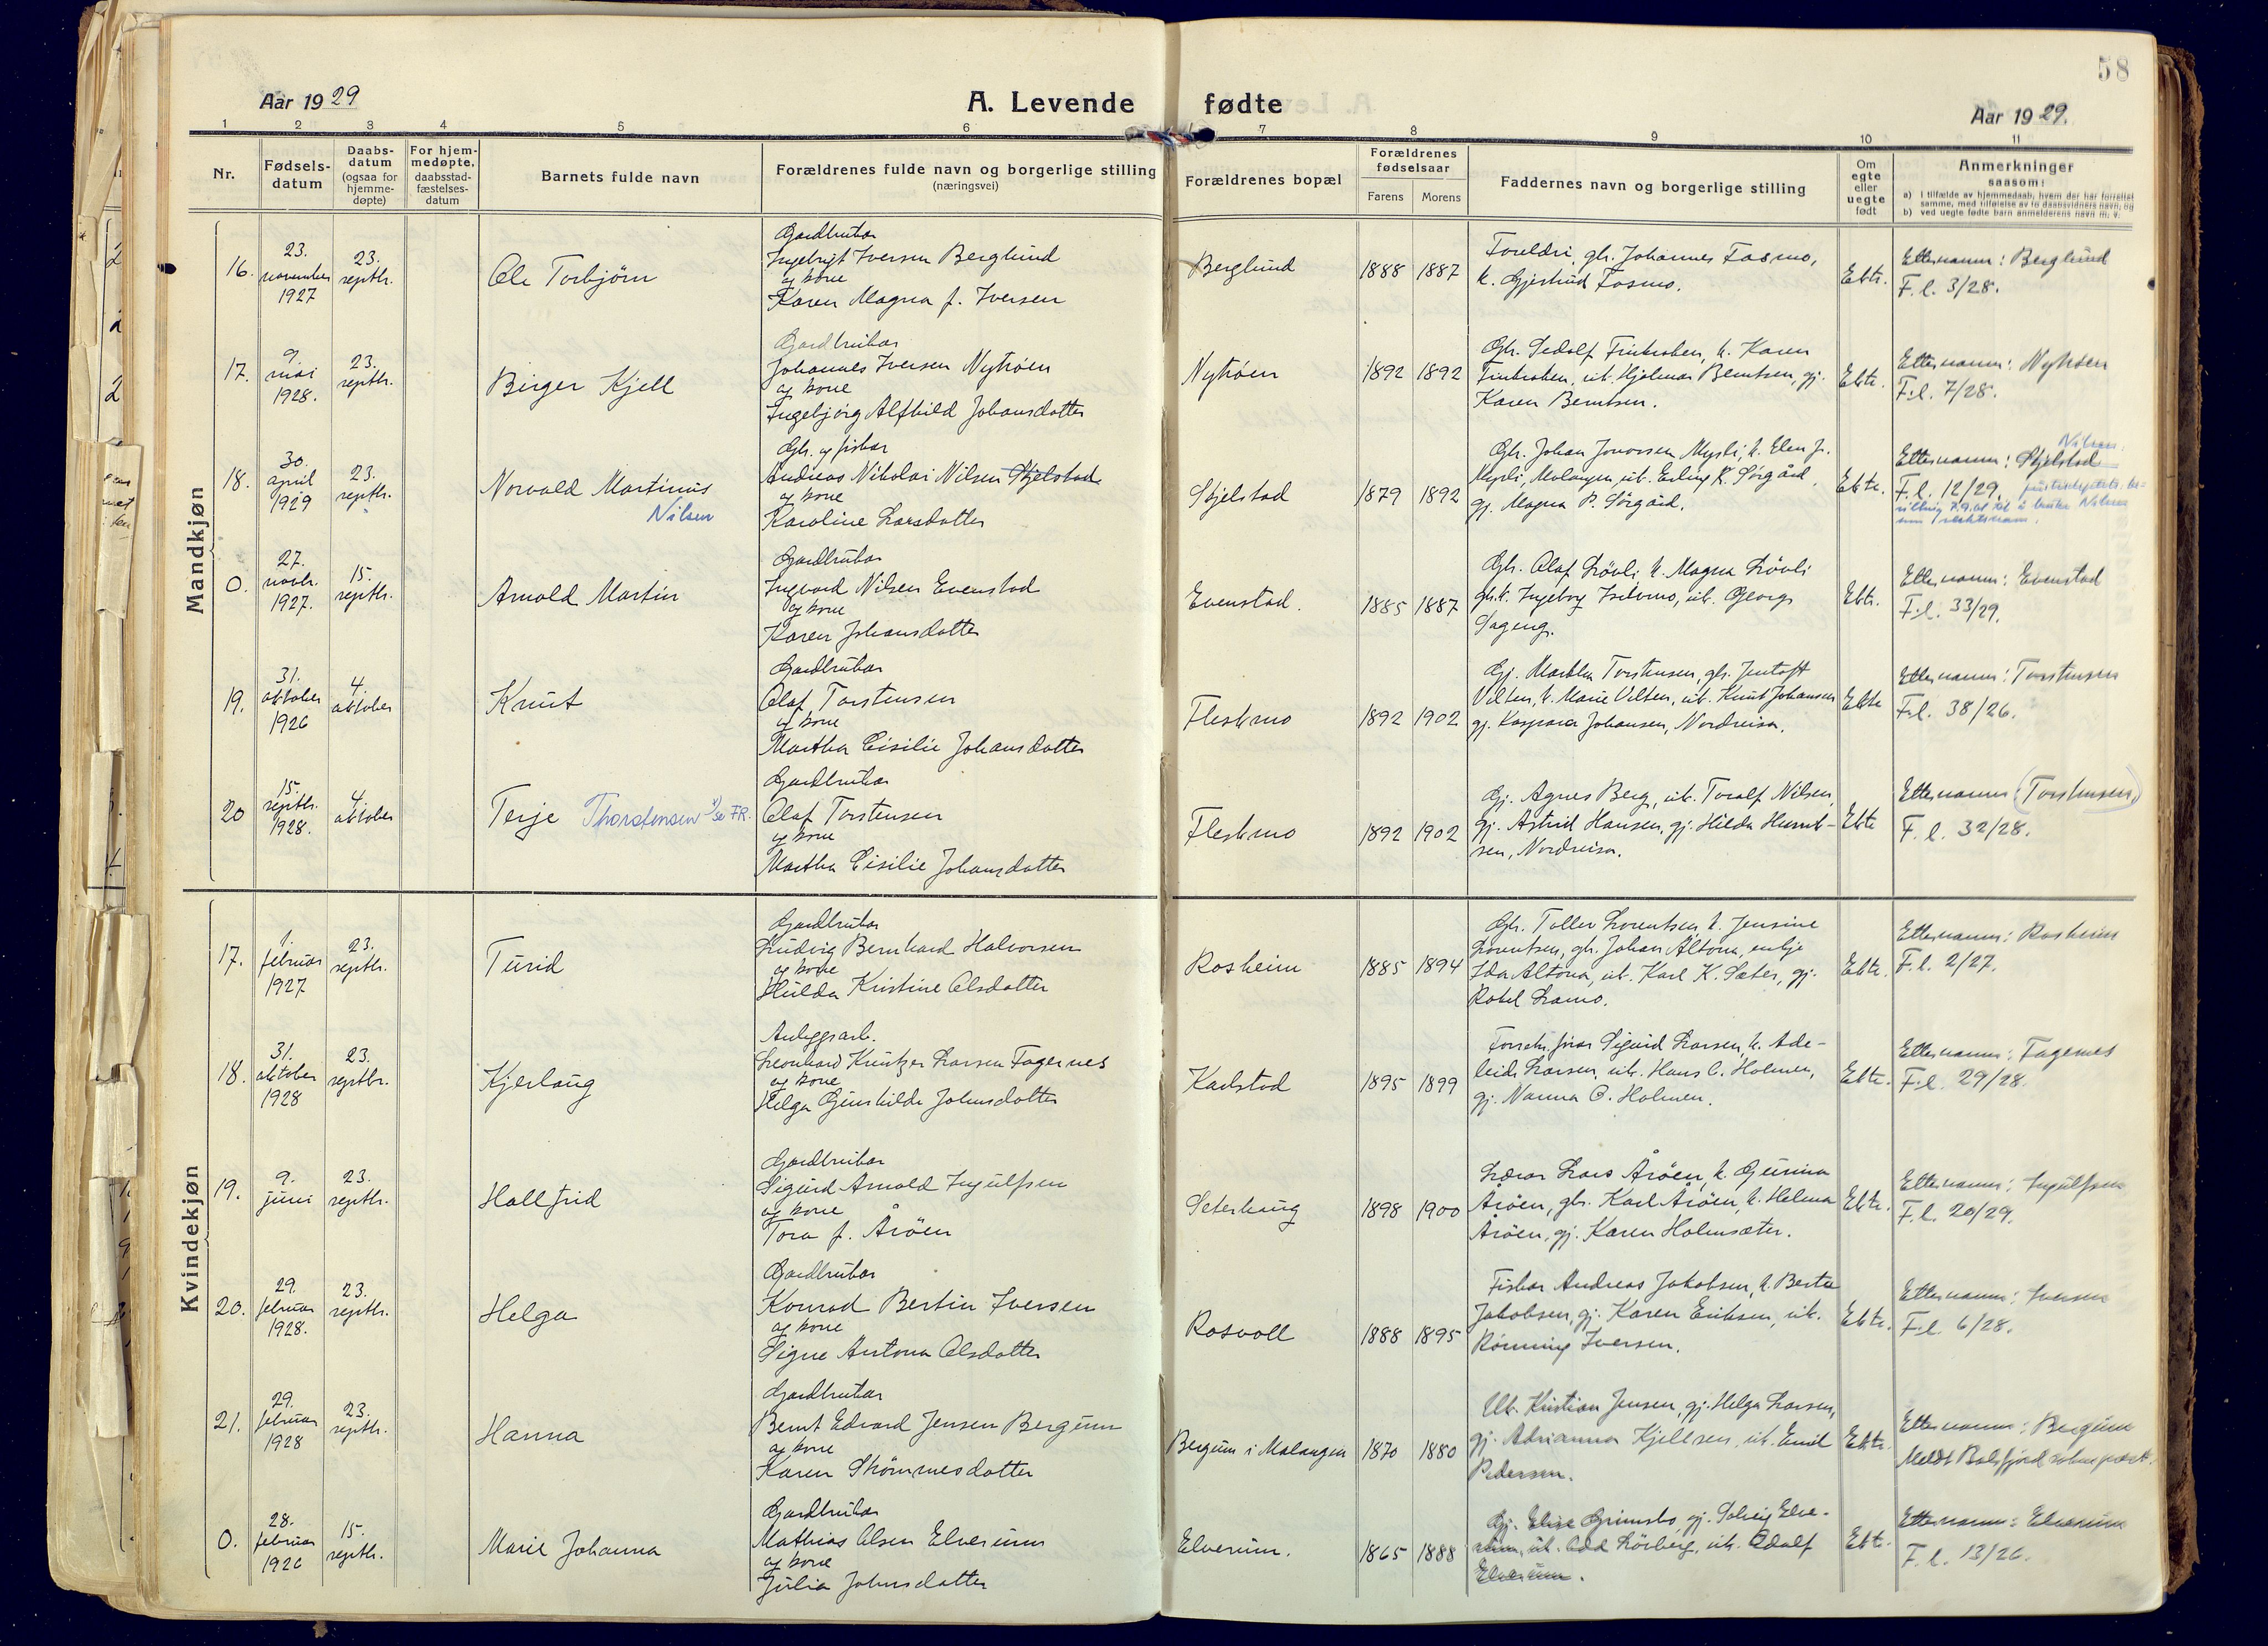 58
Aar 1929
A. Levende fødte
Aar 1929.
1 2 3 4 5 6 7 8 9 10 11
Nr.
Fødsels-
datum
Daabs-
datum
(ogsaa for
hjemme-
døpte)
For hjem-
medøpte,
daabsstad-
fæstelses-
datum
Barnets fulde navn
Forældrenes fulde navn og borgerlige stilling
(næringsvei)
Forældrenes bopæl
Forældrenes
fødselsaar
Farens Morens
Faddernes navn og borgerlige stilling
Om
egte
eller
uegte
født
Anmerkninger
saasom:
a) i tilfælde av hjemmedaab, hvem der har forrettet
samme, med tilføielse av to daabsvidners navn, og
b) ved uegte fødte barn anmelderens navn m. v.
Mandkjøn
16.
23.
november
1927
23.
septbr.
Ole Torbjörn
Gardbrukar
Ingebrigt Iversen Berglund
og kone
Karen Magna f. Iversen
Berglund
1888 1887
Foreldri, gbr. Johannes Fosmo,
k. Gjertrud Fosmo.
Ekte.
Etternamn: Berglund
F.l. 3/28.
17.
9.
mai
1928.
23.
septbr.
Birger Kjell
Gardbrukar
Johannes Iversen Nytröen
og kone
Ingebjörg Alfhild Johansdotter
Nytröen
1892 1892
Gbr. Sedolf Finkroken, k. Karen
Finkroken, uk. Hjalmar Berntsen, gj.
Karen Berntsen.
Ekte.
Etternamn: Nytröen
F.l. 7/28.
18.
30.
april
1929
23.
septbr.
Norvald Martinus
Nilsen
Gbr. og fiskar
Andreas Nikolai Nilsen Skjelstad
og kone
Karoline Larsdotter
Skjelstad
1879 1892
Gbr. Johan Jonassen Mysli, k. Elen Jr.
Mysli, Malangen, uk. Erling K. Sörgård,
gj. Magna P. Sörgård.
Ekte.
Nilsen.
Etternamn: Skjelstad
F.l. 12/29.
0.
27.
novbr.
1927.
15.
septbr.
Arnold Martin
Gardbrukar
Ingvard Nilsen Evenstad
og kone
Karen Johansdotter
Evenstad.
1885 1887
Gbr. Olaf Lövli k. Magna Lövli
gbr.k. Ingeborg Iselvmo, uk. Georg
Sageng.
Ekte.
Etternamn: Evenstad
F.l. 33/29.
19.
31.
oktober
1926
4.
oktober
Knut
Gardbrukar
Olaf Torstensen
og kone
Martha Cisilie Johansdotter
Fleskmo
1892 1902
Gj. Martha Torstensen, gbr. Jentoft
Velten, k. Marie Velten, uk. Knut Johansen
gj. Kaspara Johansen, Nordreisa.
Ekte
Etternamn: Torstensen
F.l. 38/26.
20
15.
septbr.
1928.
4.
oktober
Terje Thorstensen 1/ se FR.
Gardbrukar
Olaf Torstensen
og kone
Martha Cisilie Johansdotter
Fleskmo
1892 1902
Gj. Agnes Berg, uk. Toralf Nilsen,
gj. Astrid Hansen, gj. Hilda
sen, Nordreisa.
Ekte
Etternamn (Torstensen)
F.l. 32/28.
Kvindekjøn
17.
1.
februar
1927
23.
septbr.
Turid
Gardbrukar
Ludvig Bernhard Halvorsen
og kone
Hulda Kristine Olsdotter
Rosheim
1885 1894
Gbr. Toller Lorentsen, k. Jensine
Lorentsen, gbr. Johan Altona, enkje
Ida Altona, uk. Karl K. Sæter, gj.
Rakel Lamo.
Ekte.
Etternamn: Rosheim
F.l. 2/27.
18.
31.
oktober
1928
23.
septbr.
Kjerlaug
Anleggsarb.
Leonhard Kreutzer Larsen Fagernes
og kone
Helga Gunhilde Johnsdotter
Karlstad
1895 1899
Sigurd Larsen, k. Ade-
leide Larsen, uk. Hans C. Holmen,
gj. Nanna C. Holmen.
Ekte.
Etternamn: Fagernes
F.l. 29/28.
19.
9.
juni
23.
septbr.
Hallfrid
Gardbrukar
Sigurd Arnold Ingulfsen
og kone
Tora f. Åröen
Seterhaug
1898 1900
Lærar Lars Åröen, k. Gunina
Åröen, gbr. Karl Åröen, k. Helena
Åröen, gj. Karen Holmsæter.
Ekte.
Etternamn: Ingulfsen
F.l. 20/29.
20.
29.
februar
1928.
23.
septbr.
Helga
Gardbrukar
Konrad Bertin Iversen
og kone
Signe Antona Olsdotter
Rosvoll
1888 1895
Fiskar Andreas Jakobsen, k. Berta
Jakobsen, gj. Karen Eriksen, uk.
Rönning Iversen.
Ekte.
Etternamn: Iversen
F.l. 6/28.
21.
29.
februar
1928
23.
septbr.
Hanna
Gardbrukar
Bernt Edvard Jensen Bergum
og kone
Karen Strömmesdotter
Bergum i Malangen
1870 1880
Uk. Kristian Jensen, gj. Helga Larsen,
gj. Adrianna Kjellsen, uk. Emil
Pedersen.
Ekte.
Etternamn: Bergum
Meldt Balsfjord sokneprest.
0.
28.
februar
1926
15.
septbr.
Marie Johanna
Gardbrukar
Mathias Olsen Elverum
og kone
Julia Johnsdotter
Elverum.
1865 1888
Gj. Elise Grimsbo, gj. Solveig Elve-
rum, uk. Odd Lörberg, uk. Adolf
Elverum.
Ekte.
Etternamn: Elverum
F.l. 13/26.